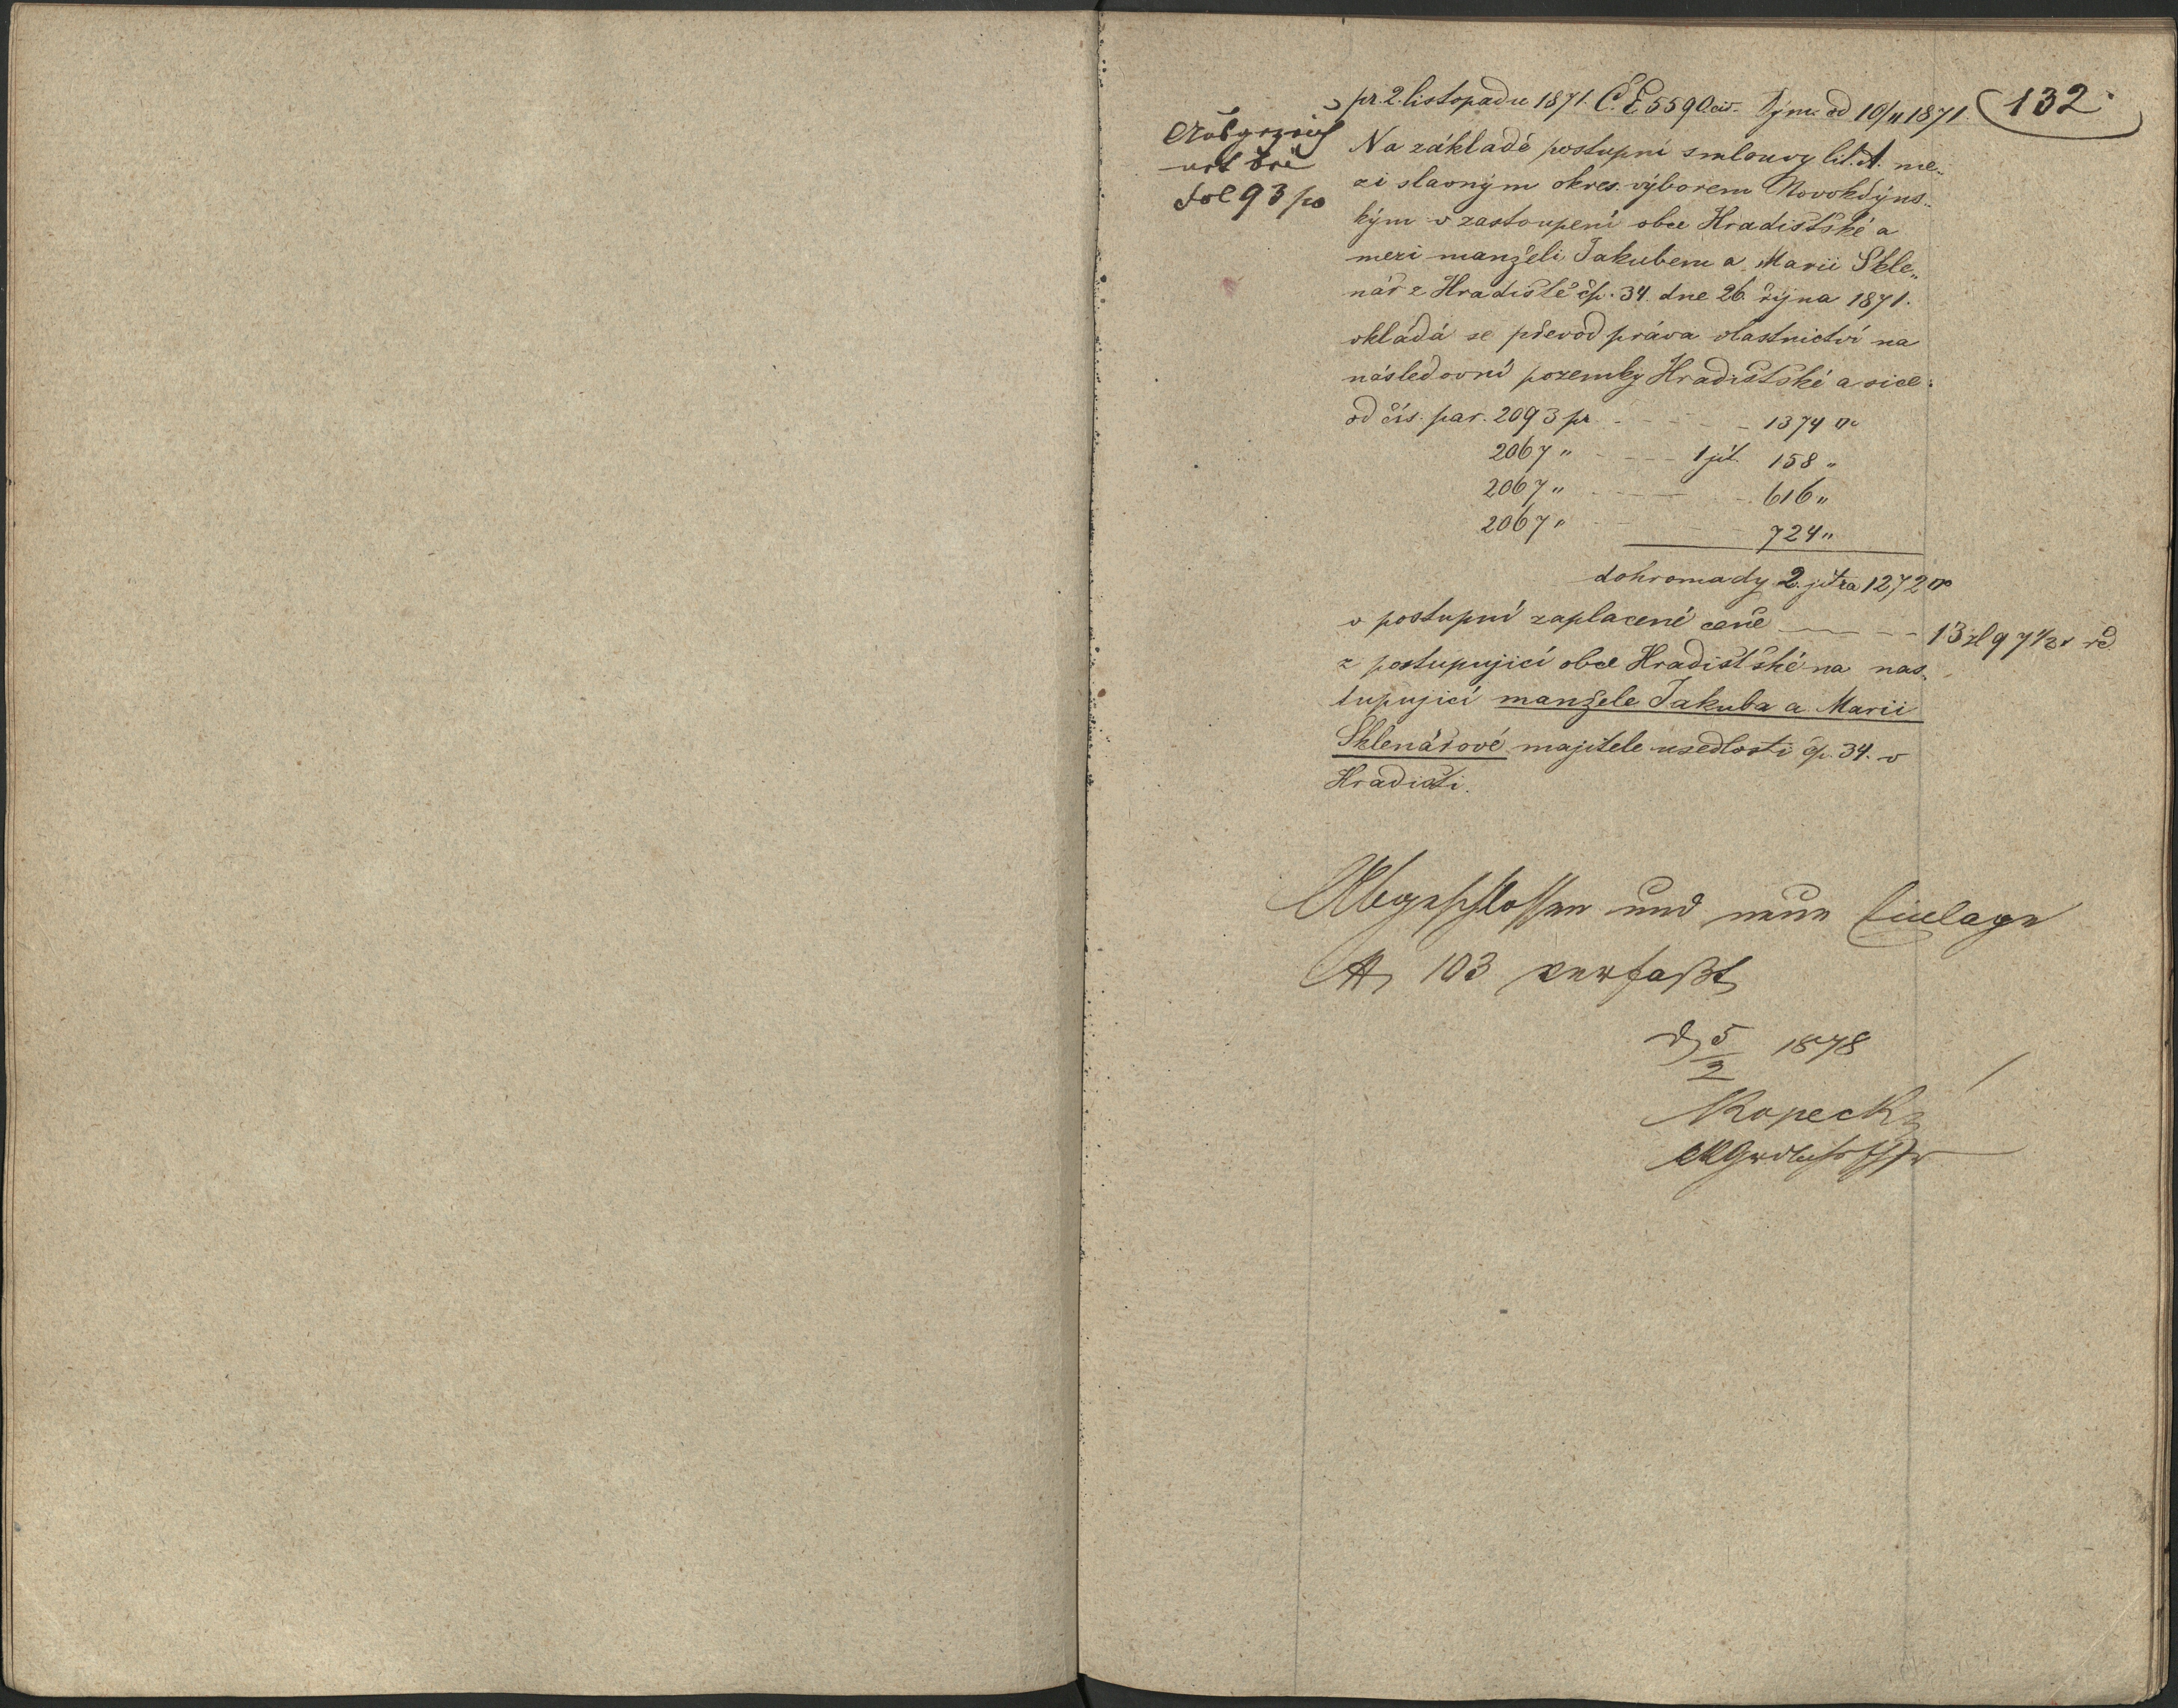 132
pr. 2. listopadu 1871. Č. E 5590 civ. Týmž od 10/11 1871.
fol 93 po
Na základě postupní smlouvy lit. A. me„
zi slavným okres. výborem Novokdýns„
kým v zastoupení obce Hradištské a
mezi manželi Jakubem a Marii Skle„
nář z Hradiště čp. 34. dne 26. října 1871.
vkládá se převod práva vlastnictví na
následovní pozemky Hradištské a sice:
od čís. par. 2093 pr 1374 □°
2067 " 1 jit. 158 "
2067 " 616 "
2067 " 724 "
dohromady 2. jitra 1272 □°
v postupní zaplacené ceně 13 zl 97 1/2 kr
z postupující obce Hradištské na nas„
tupující manžele Jakuba a Marii
Sklenářové majitele usedlosti čp. 34. v
Hradišti.
Abgeschlossen und neue Einlage
103 verfaßt
d 5/2 1878
Kopecký